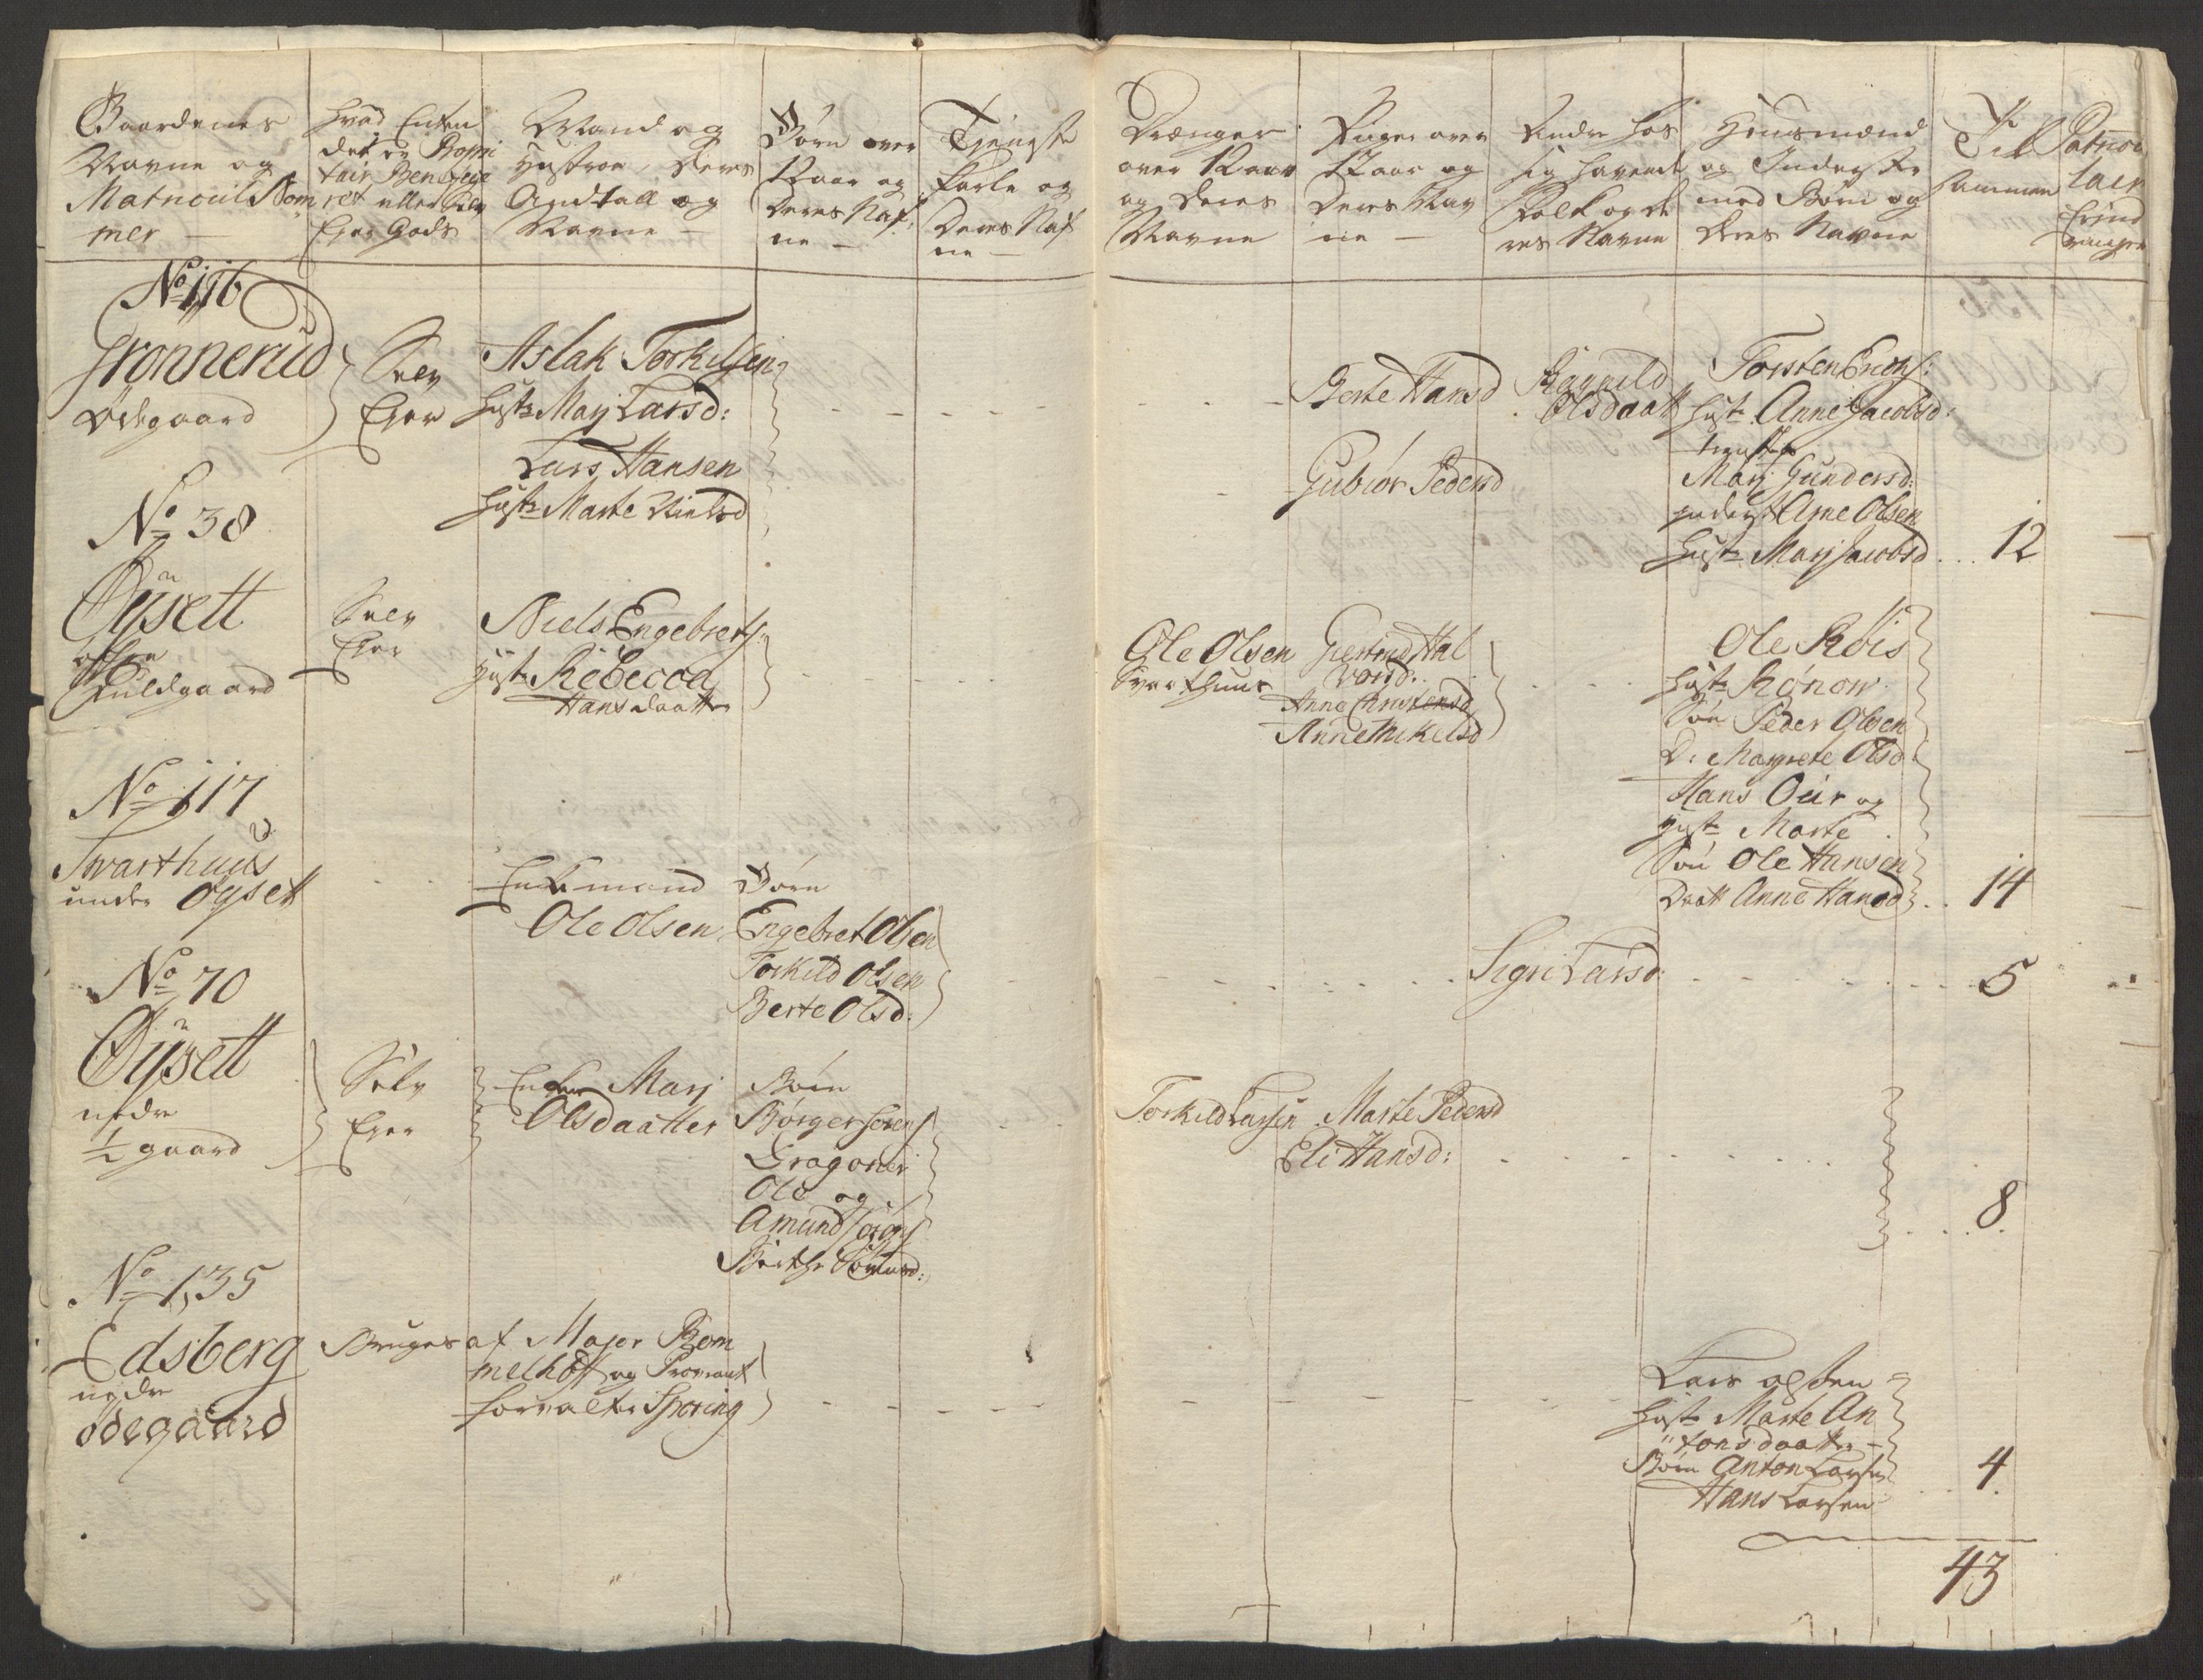 Gaardenes
Navne og
Matricul Nom
mer —
Hvad Enten
det er Propri
tair Beneficè
ret eller Selv
Ejer Gods
Mand og
Hustroe, Deres
Andtall og
Navne —
Børn over
12 aar og
Deres Naf
ne —
Tjeniste
Karle og
Deres Naf
ne —
Drænger
over 12 aar
og Deres
Navne
Piiger over
12 aar og
Deres Nav
ne —
Andre hos
sig havende
Folk og de
res Navne
Huusmænd
og Inderste
med Børn og
Deres Navne
Til
sammen
No 116
Grønnerud
Ødegaard
Selv
Ejer
Aslak Torkilsen
Hust: Marj Larsd:
Lars Hansen
Hust: Marte Nielsd
Berte Hansd
Gubiør Pedersd
Ragnild
Olsdaatt
Torsten Erichs:
Hust: Anne Jacobsd:
Marj Gundersd:
Inderst Arne Olsen
Hust: Marj Jacobsd
12
No 38
Øysett
øfre
Fuldgaard
Selv
Ejer
Niels Engebrets:
Hust: Rebecca
Hansdaatter
Ole Olsen
Svarthuus
Giertrud Hal
vorsd:
Anne Christensd
Anne Mikelsd
Ole Røis
Hust: Rønow
Søn Peder Olsen
D: Margrete Olsd
Hans Øier og
Hust: Marte
Søn Ole Hansen
Datt Anne Hansd
14
No 117
Svarthuus
under Øyset
Enkemand
Ole Olsen
Børn
Engebret Olsen
Torkild Olsen
Berte Olsd:
Sigri Larsd:
5
No 70
Øysett
nedre
1/2 gaard
Selv
Ejer
Enken Marj
Olsdaatter
Børn
Børger Sørens
Dragoner
Ole og
Amund Sørens
Berthe Sørensd:
Torkild Larsen
Marte Pedersd
Eli Hansd:
8
No 135
Edsberg
nedre
Ødegaard
Bruges af Major Rom
melhoff og Proviant
forvalter Sporing
Lars Olsen
Hust: Marte An
tonsdaatter —
Børn Anton Larsen
Hans Larsen
4
43